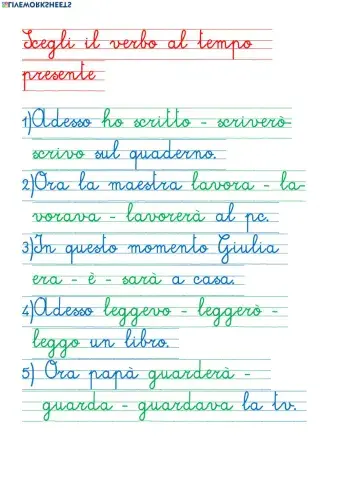 LIVEWORKSHEETS
Scegli il verbo al tempo
presente
1) Adesso ho scritto - scriverò
scrivo sul quaderno.
2) Ora la maestra lavora - la-
vorava - lavorerà al pc.
3) In questo momento Giulia
era - è - sarà a casa.
4) Adesso leggevo - leggerò -
leggo un libro.
5) Ora papà guarderà -
guarda - guardava la tv.